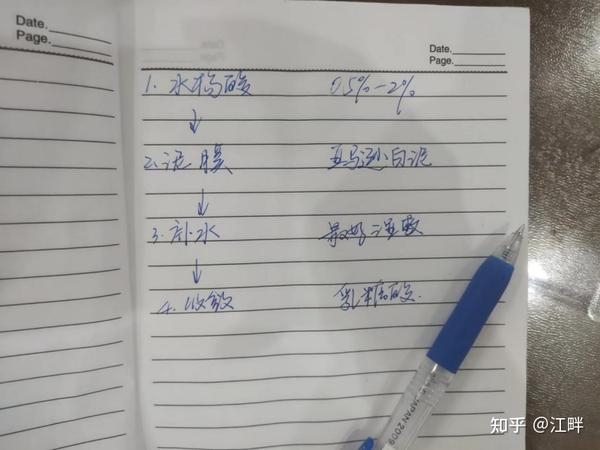 Date.
Page.
Date.
Page.
1. 水杨酸 0.5%-2%
↓
2. 泥膜 亚马逊白泥
↓
3. 补水 最好湿敷
↓
4. 收敛 乳糖酸.
JAPAN 2009
知乎 @江畔